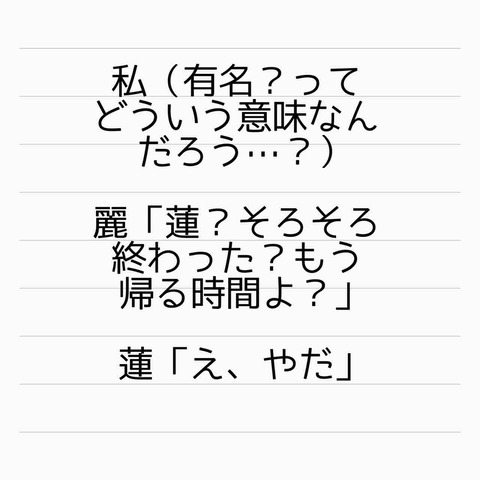 私（有名？って
どういう意味なん
だろう…？）
麗「蓮？そろそろ
終わった？もう
帰る時間よ？」
蓮「え、やだ」